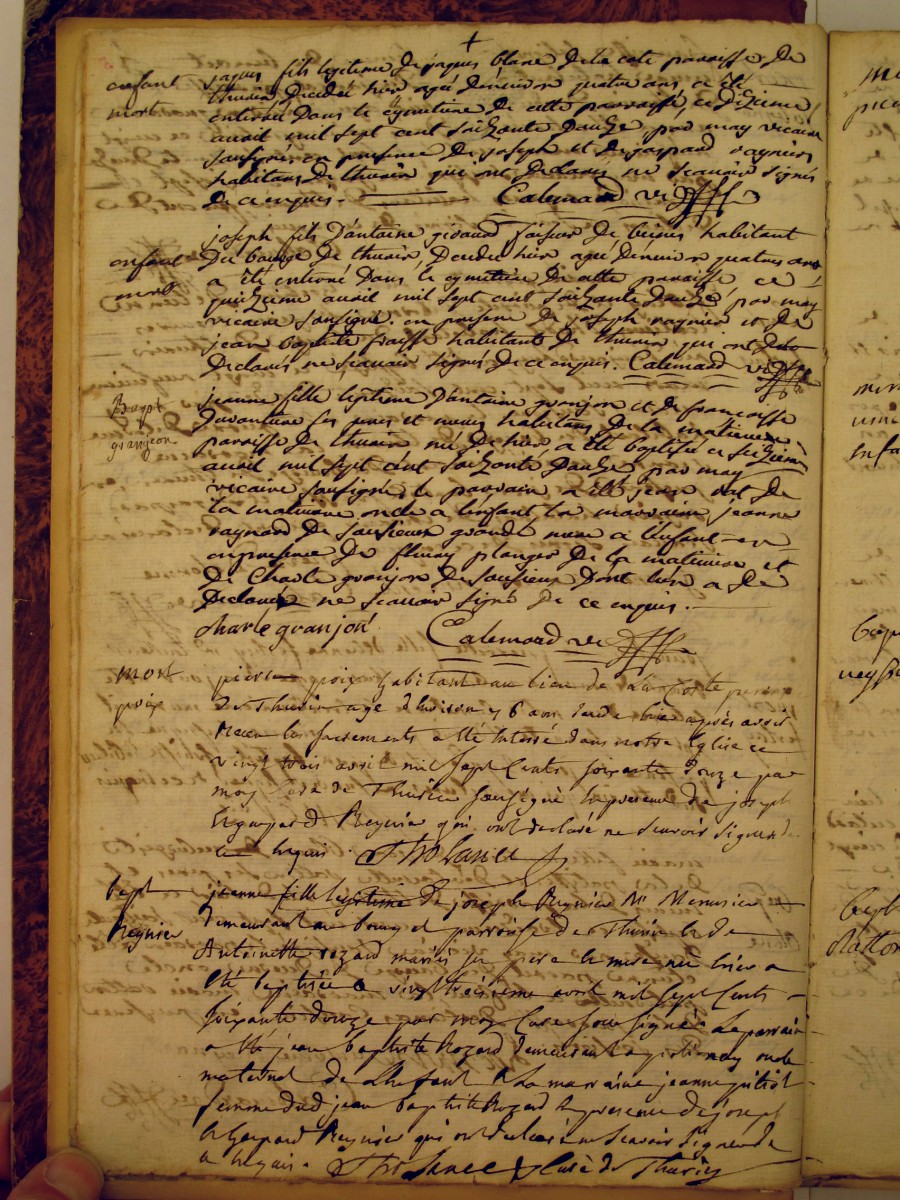 +
enfant
mort
jaques fils legitime de jaques blanc de la cote paroisse de
thurin decedé hier agé denviron quatre ans a été
enterré dans le cymetiere de cette paroisse ce dizieme
avril mil sept cent soizante douze par moy vicaire
sousigné en presence de joseph et de gaspard raynier
habitans de thurin qui ont declarés ne scavoir signés
de ce enquis. Calemard vic
enfant
mort
joseph fils d'antoine giraud de habitant
du bourg de thurin, decedé hier agé denviron quatres ans
a été enterré dans le cymetiere de cette paroisse ce
quinzieme avril mil sept cent soizante douze, par moy
vicaire sousigné. en presence de joseph raynier et de
jean baptiste fraisse habitants de thurin qui ont
declarés ne scavoir signés de ce enquis. Calemard vic
Bapt
granjeon
jeanne fille legitime d'antoine granjon et de francoise
ses peres et meres habitans de la
paroisse de thurin né de hier, a été baptisée ce seizieme
avril mil sept cent soizante douze par moy
vicaire sousigné, le parrain a été jean de
la oncle a lenfant la marraine jeanne
raynard de grande mere a lenfant
en presence de fleury de la et
de Charle granjon de dont lun a
declaré ne scavoir signé de ce enquis.
charle granjon Calemard vic
mort
poix
pierre poix habitant au lieu de la Coste
de Thurin agé d'environ 56 ans decedé hier après avoir
receu les sacrements a été enterré dans notre Eglise ce
vingt trois avril mil sept cents soixante douze par
moy curé de Thurin sousigné en presence de joseph
et gaspard Reynier qui ont declaré ne scavoir signer de
ce enquis.
bapt
Reynier
jeanne fille legitime de joseph Reynier Me Menuisier
demeurant au bourg et parroisse de Thurin et de
Antoinette rozard mariés ses pere et mere née hier a
été baptisée ce vingt troisieme avril mil sept cents
soixante douze par moy Curé soussigné. Le parrain
a été jean baptiste Rozard demeurant a oncle
maternel de L'Enfant & La marraine jeanne
femme dud jean baptiste Rozard en presence de joseph
et Gaspard Reynier qui ont declaré ne scavoir signer de
ce enquis. Curé de Thurin